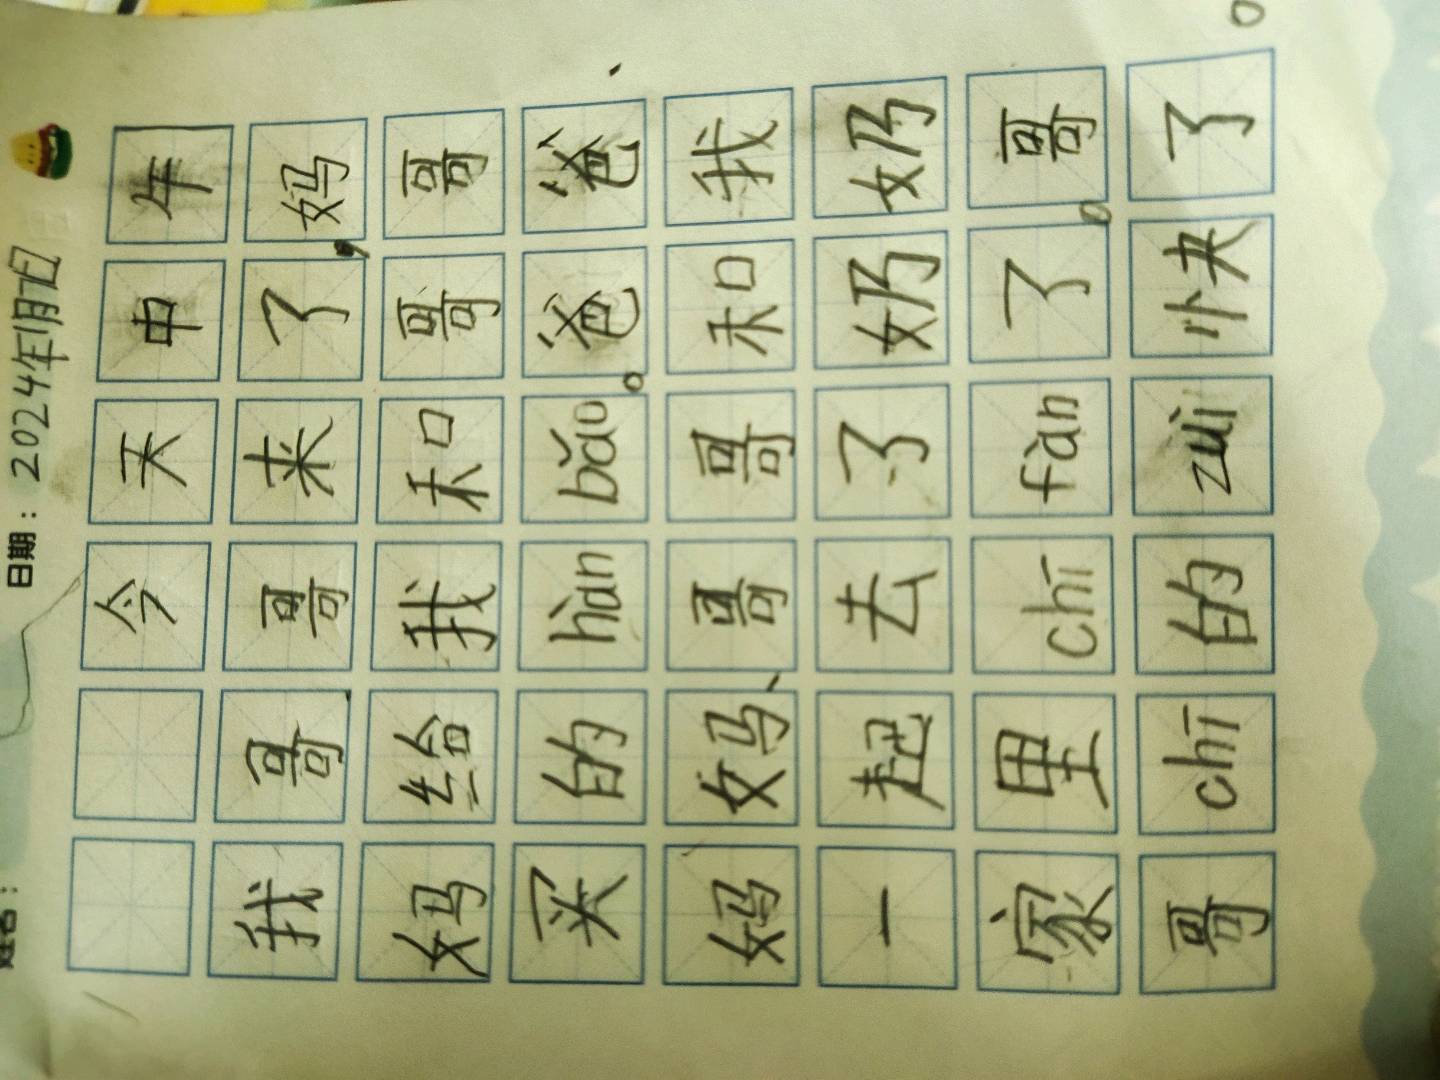 姓名： 日期：2024年1月7日
今天申年
我哥哥来了，妈
妈给我和哥哥
买的hàn bǎo。爸爸、
妈妈、哥哥和我
一起去了奶奶
家里chī fàn了。哥
哥chī的zuì快了。